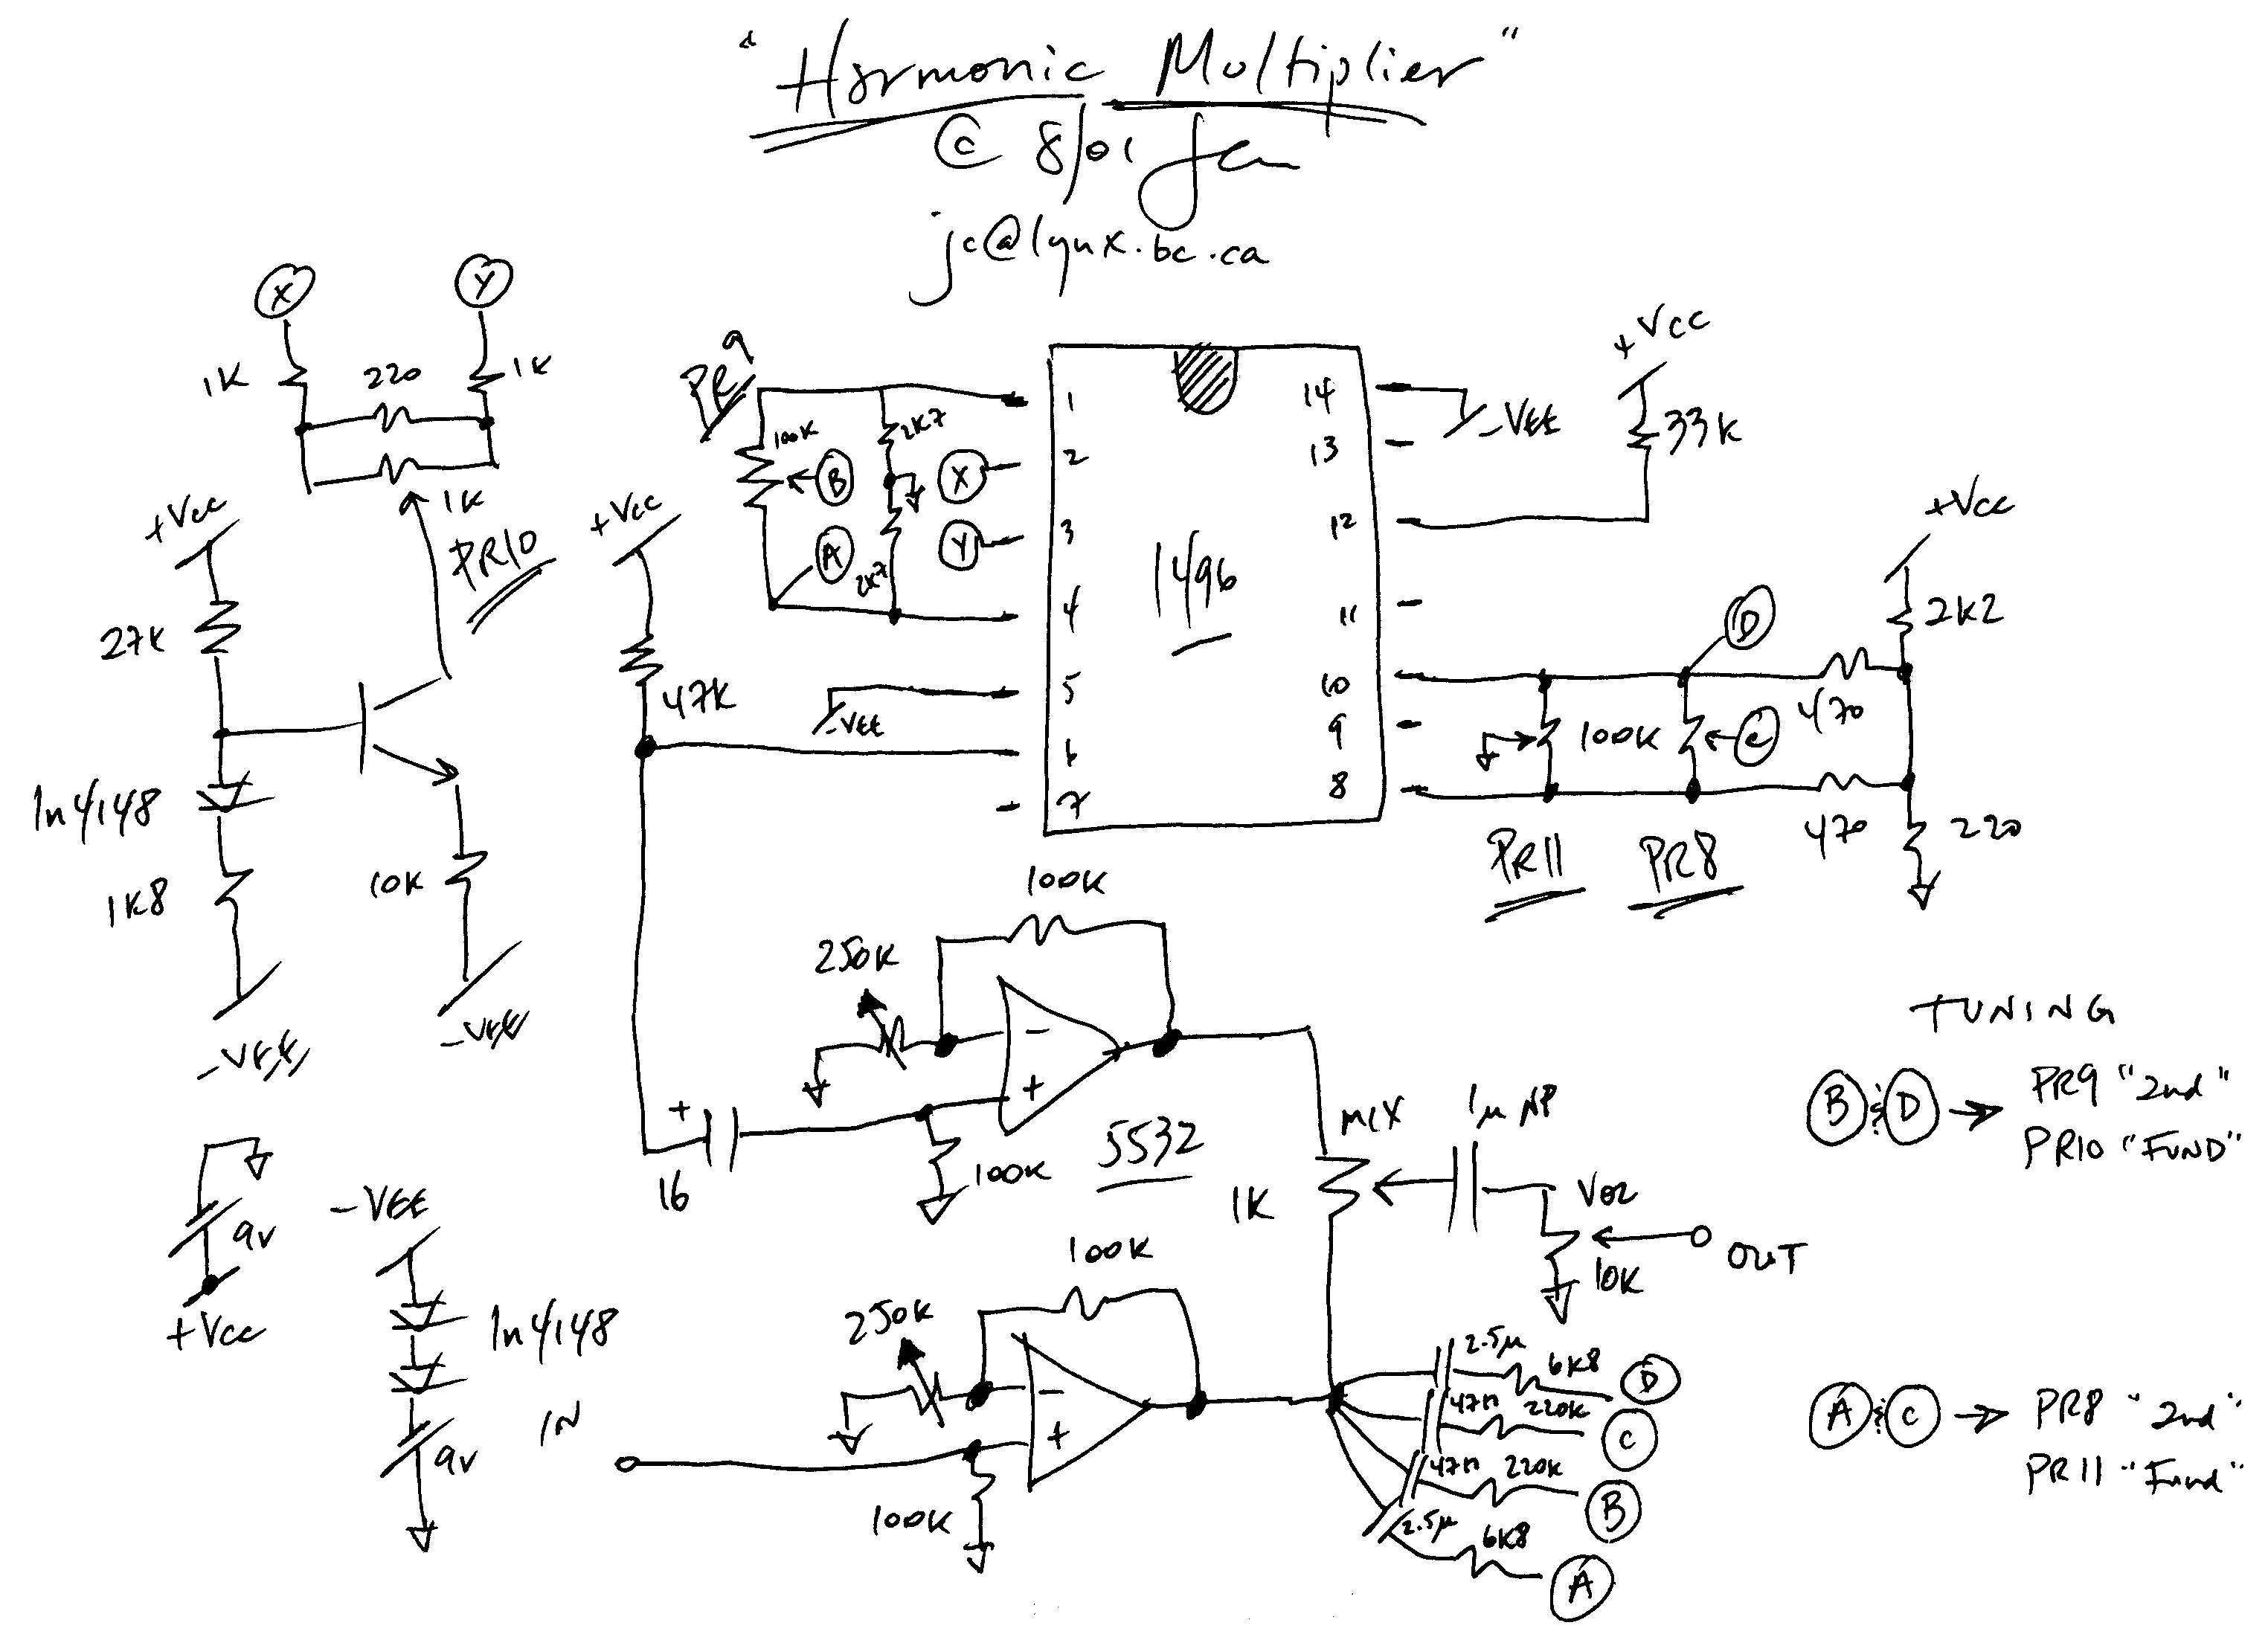 "Harmonic Multiplier"
© 8/01
jc@lynx.bc.ca
X
Y
1K
220
1K
1K
PR10
+Vcc
27K
1n4148
1K8
-VEE
10K
-VEE
PR9
100K
B
A
2K7
2K7
X
Y
+Vcc
47K
-VEE
1
2
3
4
5
6
7
1496
14
13
12
11
10
9
8
-VEE
+Vcc
33K
+Vcc
2K2
D
470
100K
C
470
220
PR11
PR8
100K
250K
-
+
5532
+
16
100K
MIX
1K
1µ NP
VOL
10K
OUT
9V
+Vcc
-VEE
1n4148
9V
IN
100K
250K
-
+
100K
2.5µ
6K8
D
47n
220K
C
47n
220K
B
2.5µ
6K8
A
TUNING
B & D → PR9 "2nd"
PR10 "FUND"
A & C → PR8 "2nd"
PR11 "Fund"